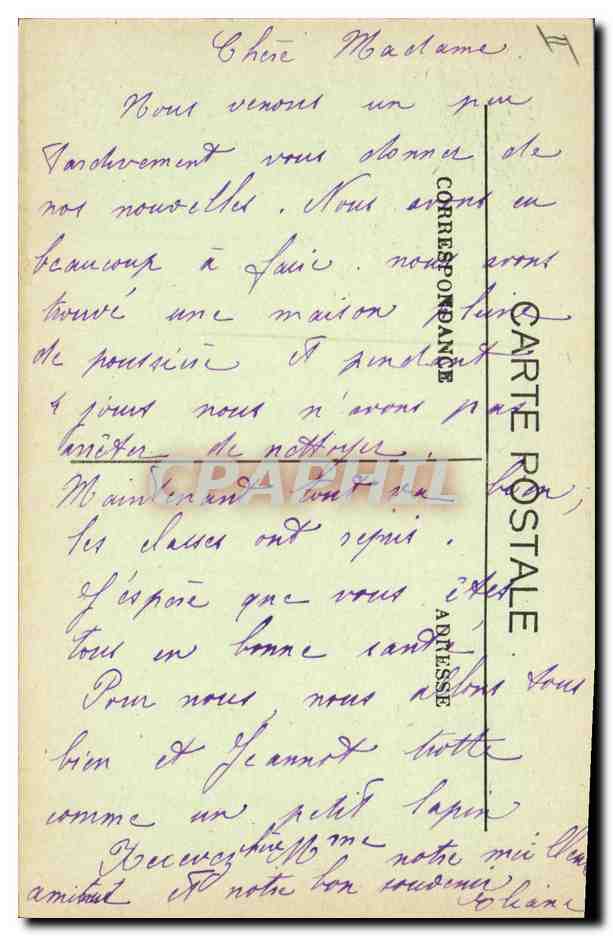 Chère Madame.
II
Nous venons un peu
tardivement vous donner de
nos nouvelles. Nous avons eu
beaucoup à faire. nous avons
trouvé une maison pleine
de poussière et pendant
4 jours nous n'avons pas
arrêter de nettoyer.
Maintenant tout va bien,
les classes ont repris.
J'éspère que vous êtes
tous en bonne santé,
Pour nous, nous allons tous
bien et Jeannot trotte
comme un petit lapin
Recevez chère Mme notre meilleure
amitié et notre bon souvenir
Eliane
CARTE POSTALE
CORRESPONDANCE
ADRESSE
CPAPHIL